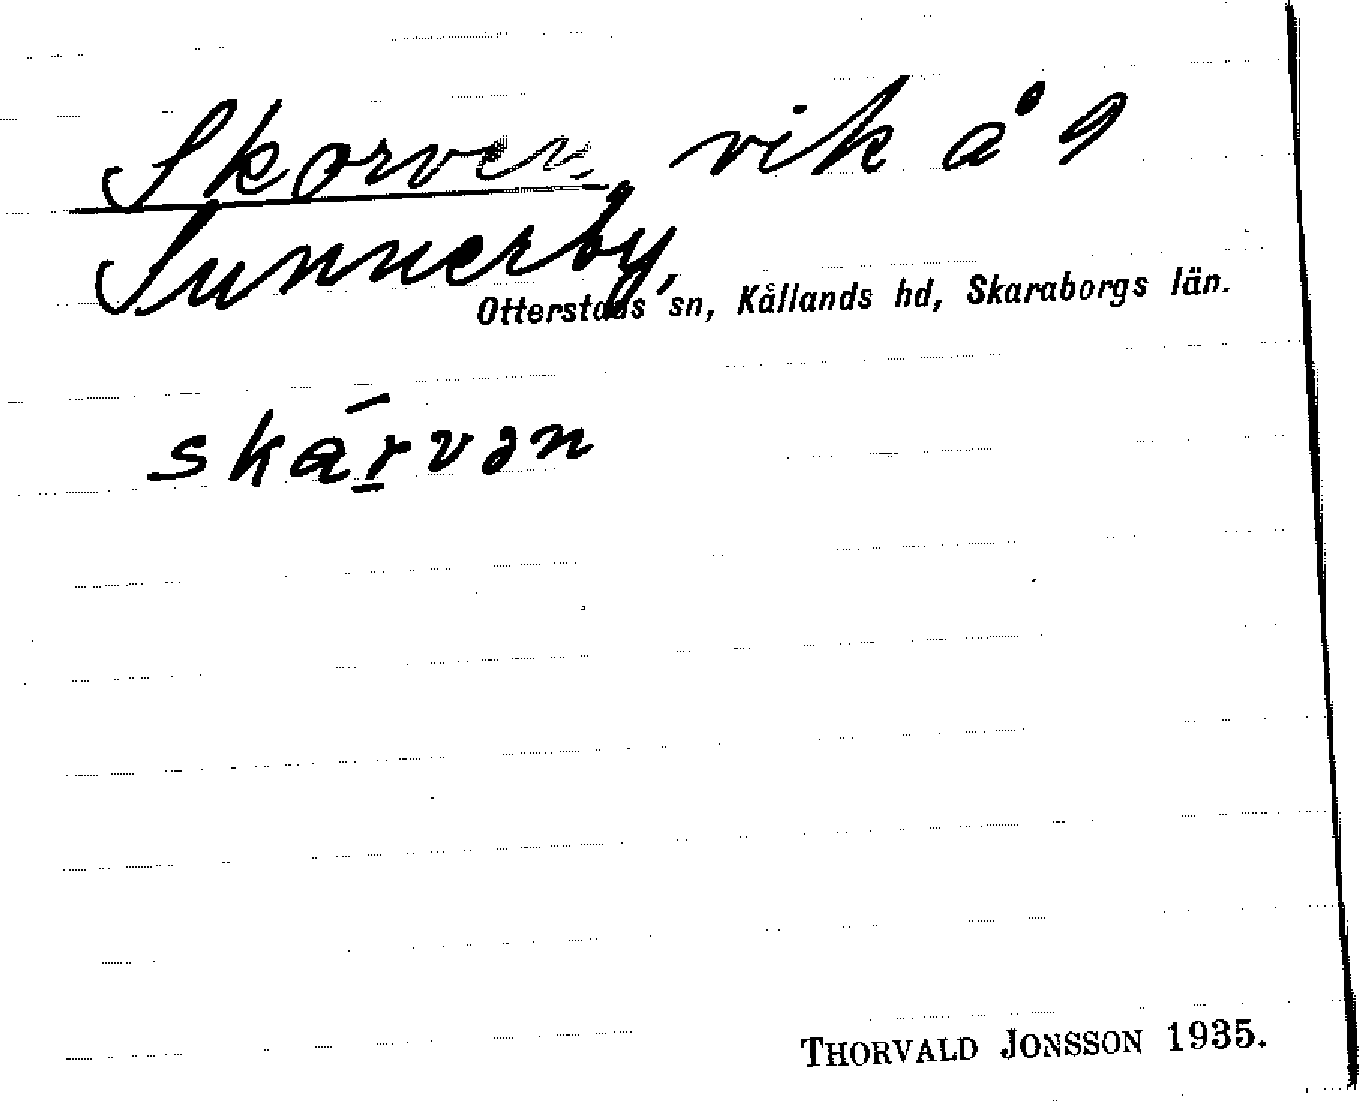 Skorven, vik å 9
Sunnerby,
Otterstads sn, Kållands hd, Skaraborgs län.
skárvən
THORVALD JONSSON 1935.